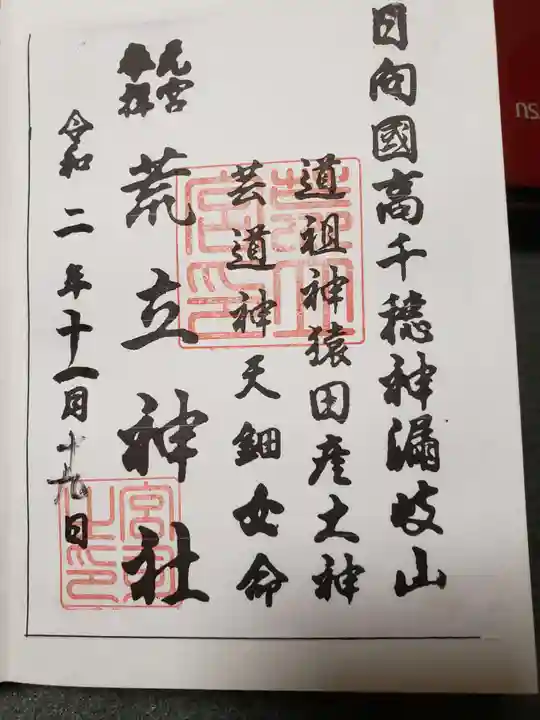 日向國高千穂神漏岐山
道祖神猿田彦土神
芸道神天鈿女命
元宮
奉拝
荒立神社
令和二年十一月十九日